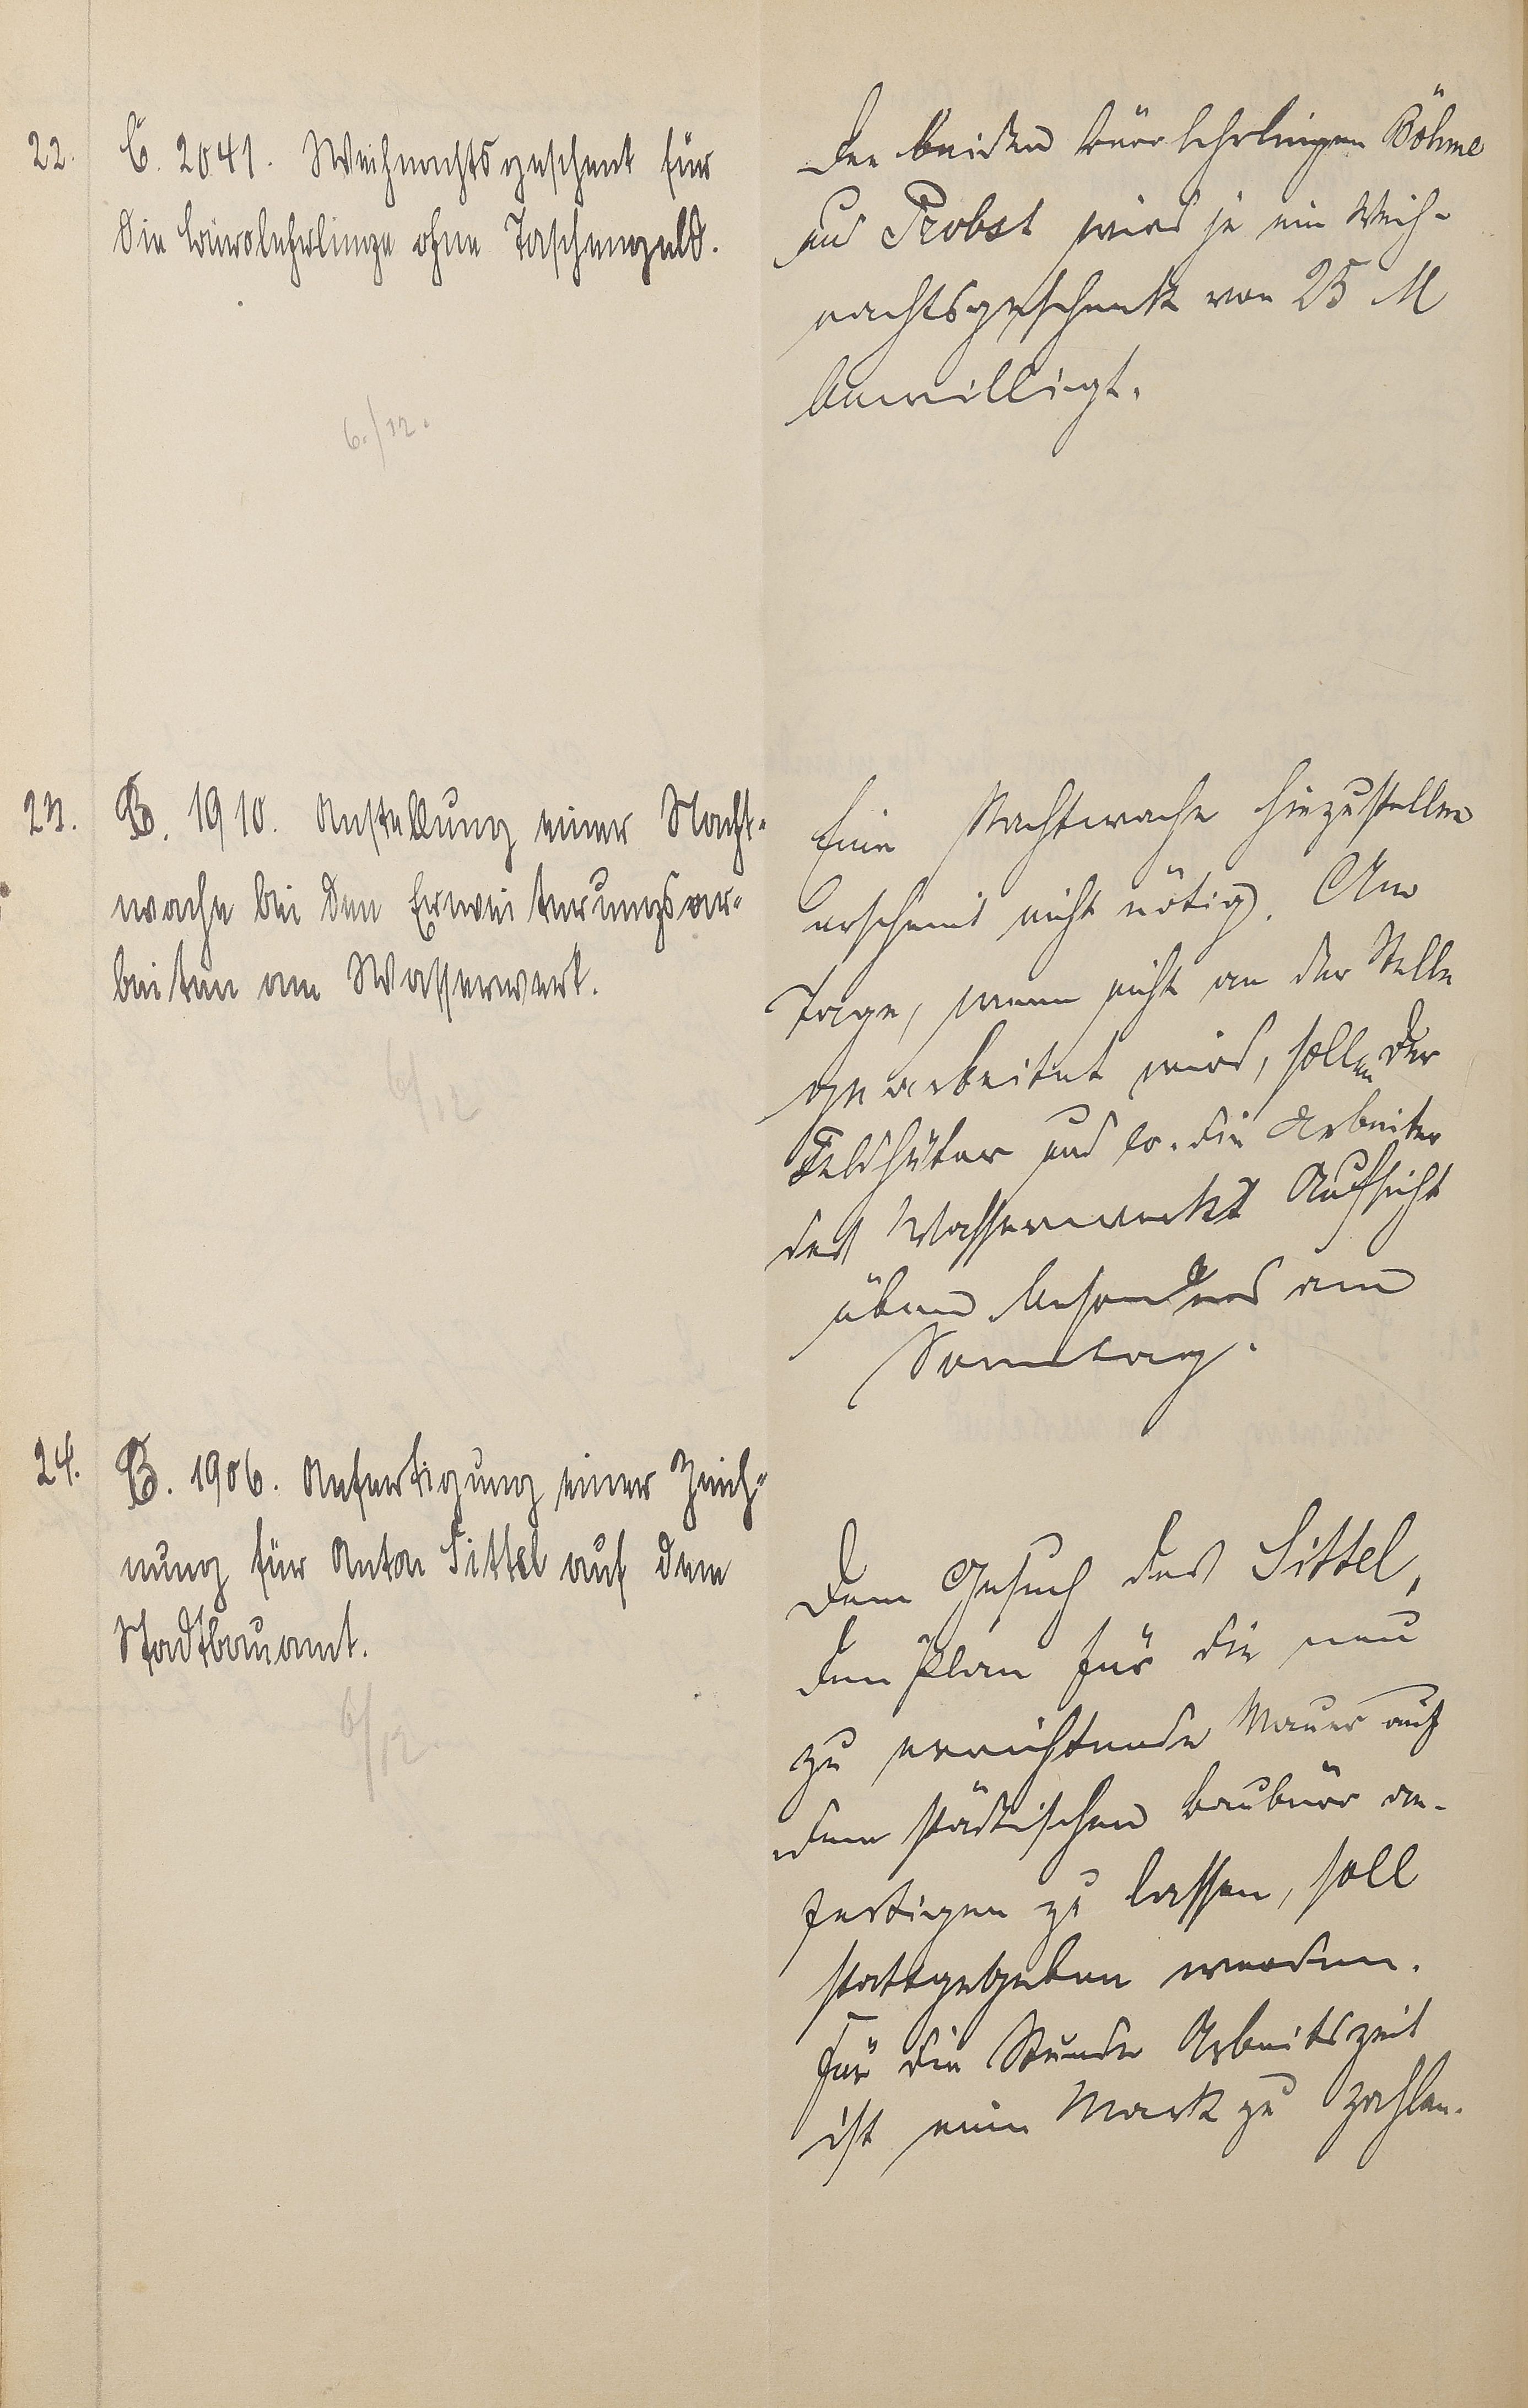 22. C. 2041. Weihnachtsgeschenk für
die Bürolehrlinge ohne Taschengeld.
6./12.
Den beiden Bürlehrlingen Böhme
und Probst wird je ein Weih-
nachtsgeschenk von 25 M
bewilligt.
23. B. 1910. Anstellung einer Nacht-
wache bei den Erweiterungsar-
beiten am Wasserwerk.
6/12
Eine Nachtwache hinzustellen
erscheint nicht nötig. Am
Tage, wenn nicht an der Stelle
gearbeitet wird, sollen der
Feldhüter und ev. die Arbeiter
des Wasserwerks Aufsicht
üben besonders am
Sonntag.
24. B. 1906. Anfertigung einer Zeich-
nung für Anton Sittel auf dem
Stadtbauamt.
6/12
Dem Gesuch des Sittel,
den Plan für die neu
zu errichtende Mauer auf
dem städtischen Baubüro an-
fertigen zu lassen, soll
stattgegeben werden.
Für die Stunde Arbeitszeit
ist eine Mark zu zahlen.